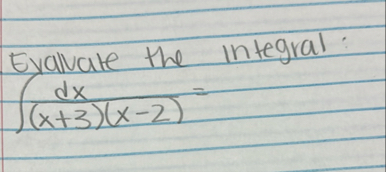 Evaluate the integral:
∫ dx / (x+3)(x-2) =